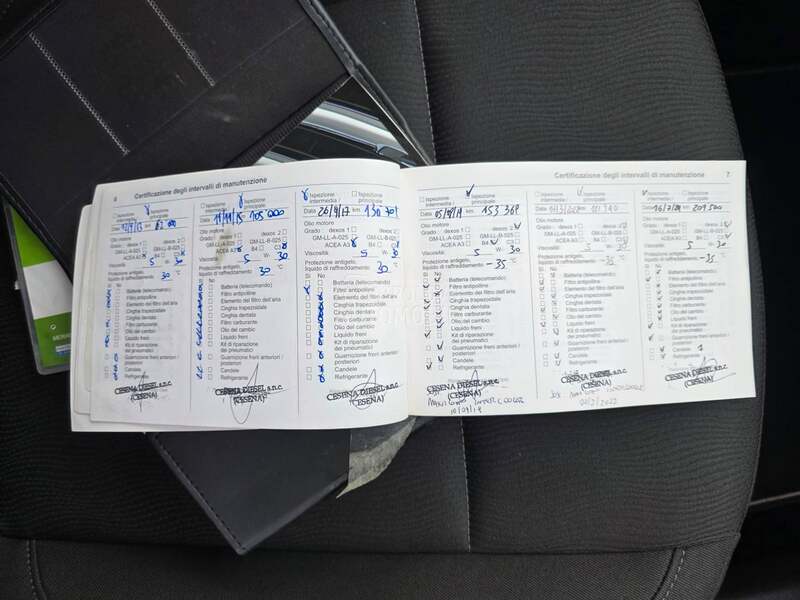 6 Certificazione degli intervalli di manutenzione
Ispezione intermedia / Ispezione principale
Data km 82 000
Olio motore
Grado: dexos 1 dexos 2
GM-LL-A-025 GM-LL-B-025
ACEA A3 B4 C3
Viscosità 5 W- 30
Protezione antigelo,
liquido di raffreddamento: 30 °C
Sì No
Batteria (telecomando)
Filtro antipolline
Elemento del filtro dell'aria
Cinghia trapezoidale
Cinghia dentata
Filtro carburante
Olio del cambio
Liquido freni
Kit di riparazione
dei pneumatici
Guarnizione freni anteriori /
posteriori
Candele
Refrigerante
CESENA DIESEL s.n.c.
(CESENA)
Ispezione intermedia / Ispezione principale
Data km 105 000
Olio motore
Grado: dexos 1 dexos 2
GM-LL-A-025 GM-LL-B-025
ACEA A3 B4 C3
Viscosità 5 W- 30
Protezione antigelo,
liquido di raffreddamento: 30 °C
Sì No
Batteria (telecomando)
Filtro antipolline
Elemento del filtro dell'aria
Cinghia trapezoidale
Cinghia dentata
Filtro carburante
Olio del cambio
Liquido freni
Kit di riparazione
dei pneumatici
Guarnizione freni anteriori /
posteriori
Candele
Refrigerante
CESENA DIESEL s.n.c.
(CESENA)
Ispezione intermedia / Ispezione principale
Data 26/9/17 km 130 301
Olio motore
Grado: dexos 1 dexos 2
GM-LL-A-025 GM-LL-B-025
ACEA A3 B4 C3
Viscosità 5 W- 30
Protezione antigelo,
liquido di raffreddamento: 30 °C
Sì No
Batteria (telecomando)
Filtro antipolline
Elemento del filtro dell'aria
Cinghia trapezoidale
Cinghia dentata
Filtro carburante
Olio del cambio
Liquido freni
Kit di riparazione
dei pneumatici
Guarnizione freni anteriori /
posteriori
Candele
Refrigerante
CESENA DIESEL s.n.c.
(CESENA)
Certificazione degli intervalli di manutenzione 7
Ispezione intermedia / Ispezione principale
Data km 153 361
Olio motore
Grado: dexos 1 dexos 2
GM-LL-A-025 GM-LL-B-025
ACEA A3 B4 C3
Viscosità 5 W- 30
Protezione antigelo,
liquido di raffreddamento: -35 °C
Sì No
Batteria (telecomando)
Filtro antipolline
Elemento del filtro dell'aria
Cinghia trapezoidale
Cinghia dentata
Filtro carburante
Olio del cambio
Liquido freni
Kit di riparazione
dei pneumatici
Guarnizione freni anteriori /
posteriori
Candele
Refrigerante
CESENA DIESEL s.n.c.
(CESENA)
10/09/19
Ispezione intermedia / Ispezione principale
Data km
Olio motore
Grado: dexos 1 dexos 2
GM-LL-A-025 GM-LL-B-025
ACEA A3 B4 C3
Viscosità 5 W- 30
Protezione antigelo,
liquido di raffreddamento: -35 °C
Sì No
Batteria (telecomando)
Filtro antipolline
Elemento del filtro dell'aria
Cinghia trapezoidale
Cinghia dentata
Filtro carburante
Olio del cambio
Liquido freni
Kit di riparazione
dei pneumatici
Guarnizione freni anteriori /
posteriori
Candele
Refrigerante
CESENA DIESEL s.n.c.
(CESENA)
Ispezione intermedia / Ispezione principale
Data km 209 500
Olio motore
Grado: dexos 1 dexos 2
GM-LL-A-025 GM-LL-B-025
ACEA A3 B4 C3
Viscosità 5 W- 30
Protezione antigelo,
liquido di raffreddamento: -35 °C
Sì No
Batteria (telecomando)
Filtro antipolline
Elemento del filtro dell'aria
Cinghia trapezoidale
Cinghia dentata
Filtro carburante
Olio del cambio
Liquido freni
Kit di riparazione
dei pneumatici
Guarnizione freni anteriori /
posteriori
Candele
Refrigerante
CESENA DIESEL s.n.c.
(CESENA)